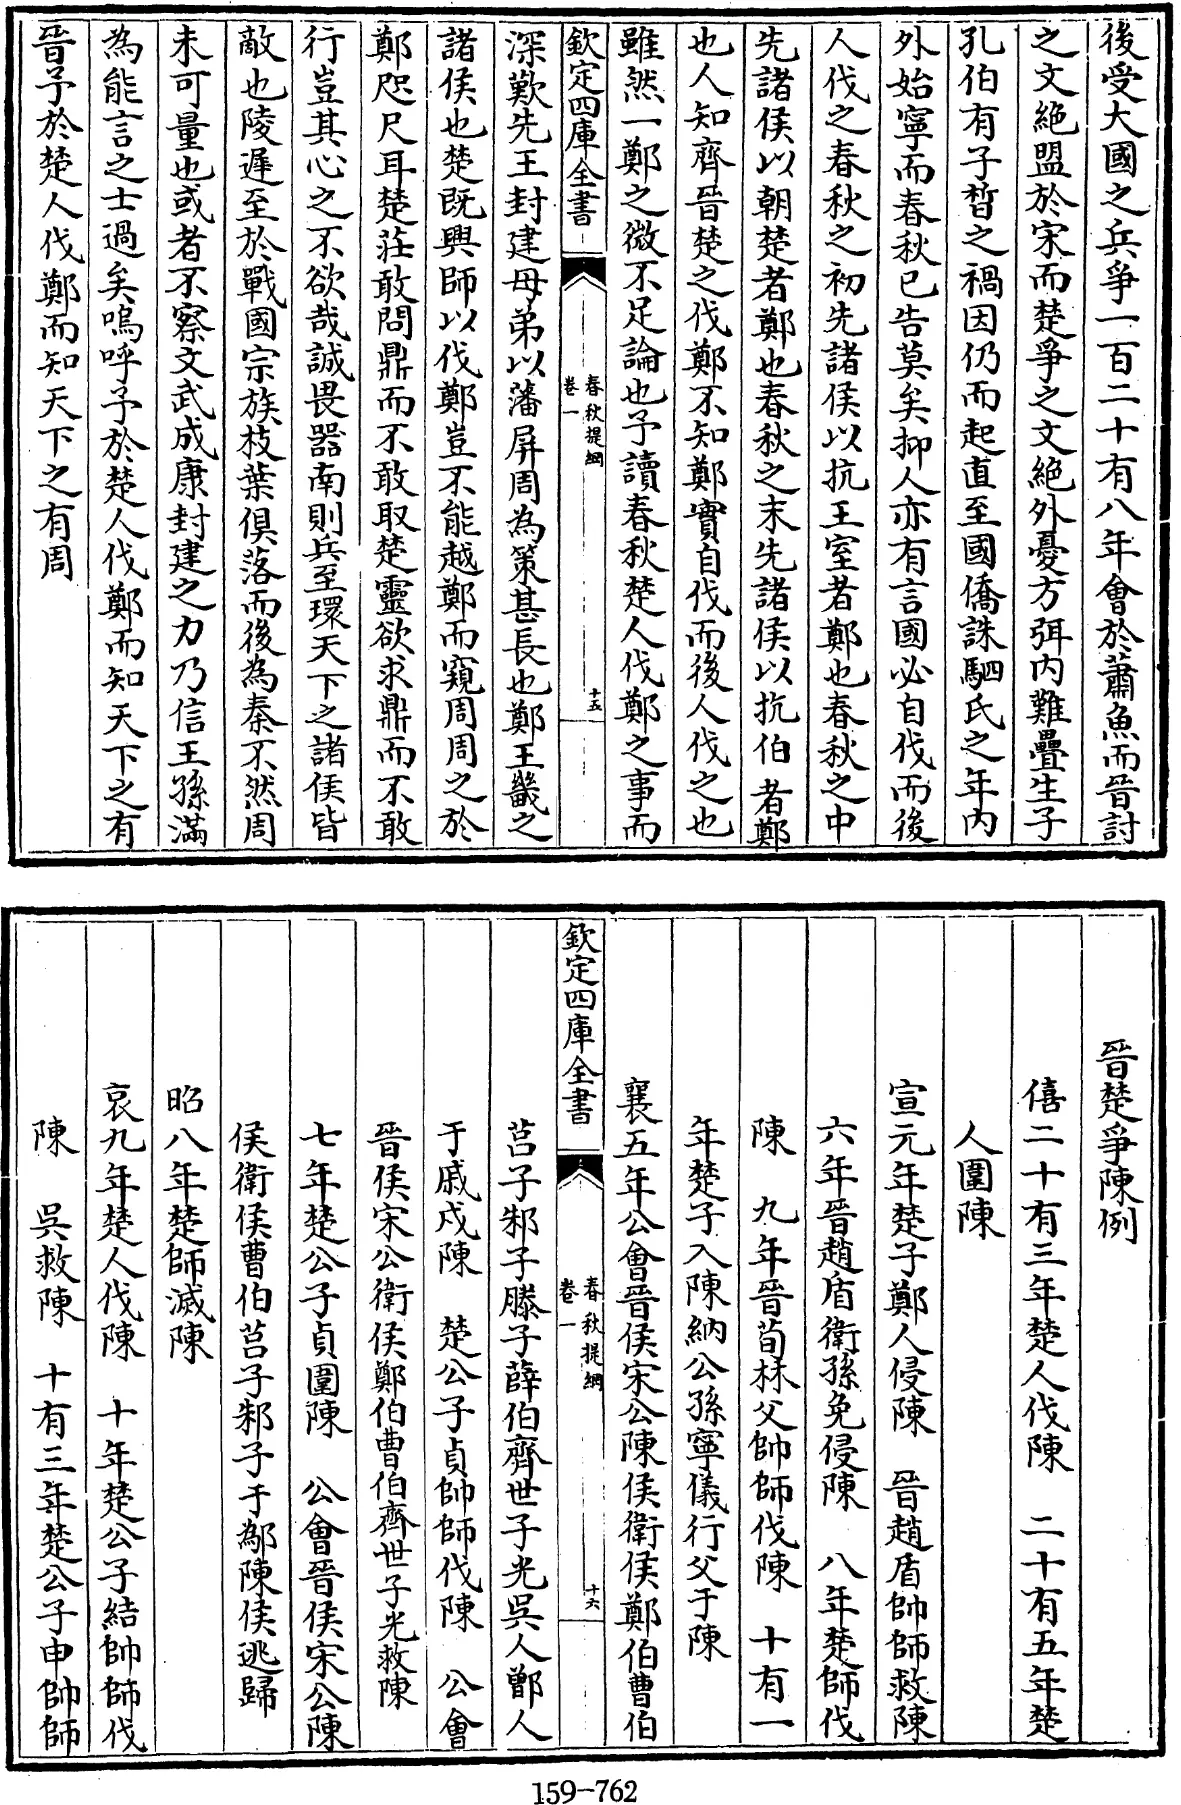 後受大國之兵爭一百二十有八年會於蕭魚而晉討
之文絶盟於宋而楚爭之文絶外憂方弭内難疊生子
孔伯有子晳之禍因仍而起直至國僑誅駟氏之年内
外始寧而春秋已告莫矣抑人亦有言國必自伐而後
人伐之春秋之初先諸侯以抗王室者鄭也春秋之中
先諸侯以朝楚者鄭也春秋之末先諸侯以抗伯者鄭
也人知齊晉楚之伐鄭不知鄭實自伐而後人伐之也
雖然一鄭之微不足論也予讀春秋楚人伐鄭之事而
欽定四庫全書
春秋提綱
卷一
十五
深歎先王封建母弟以藩屏周為策甚長也鄭王畿之
諸侯也楚既興師以伐鄭豈不能越鄭而窺周周之於
鄭咫尺耳楚莊敢問鼎而不敢取楚靈欲求鼎而不敢
行豈其心之不欲哉誠畏器南則兵至環天下之諸侯皆
敵也陵遲至於戰國宗族枝葉俱落而後為秦不然周
未可量也或者不察文武成康封建之力乃信王孫滿
為能言之士過矣嗚呼予於楚人伐鄭而知天下之有
晉予於楚人伐鄭而知天下之有周
晉楚爭陳例
僖二十有三年楚人伐陳　二十有五年楚
人圍陳
宣元年楚子鄭人侵陳　晉趙盾帥師救陳
六年晉趙盾衛孫免侵陳　八年楚師伐
陳　九年晉荀林父帥師伐陳　十有一
年楚子入陳納公孫寧儀行父于陳
襄五年公會晉侯宋公陳侯衛侯鄭伯曹伯
欽定四庫全書
春秋提綱
卷一
十六
莒子邾子滕子薛伯齊世子光吳人鄫人
于戚戍陳　楚公子貞帥師伐陳　公會
晉侯宋公衛侯鄭伯曹伯齊世子光救陳
七年楚公子貞圍陳　公會晉侯宋公陳
侯衛侯曹伯莒子邾子于鄬陳侯逃歸
昭八年楚師滅陳
哀九年楚人伐陳　十年楚公子結帥師伐
陳　吳救陳　十有三年楚公子申帥師
159-762